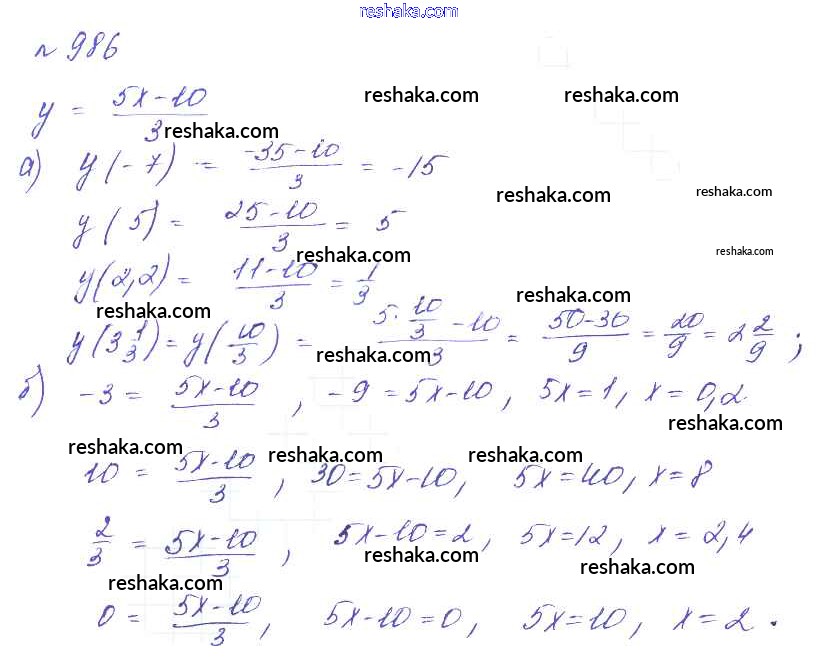 reshaka.com
№ 986
y = (5x-10)/3 reshaka.com reshaka.com reshaka.com
а) y(-7) = (-35-10)/3 = -15 reshaka.com reshaka.com
y(5) = (25-10)/3 = 5 reshaka.com reshaka.com
y(2,2) = (11-10)/3 = 1/3 reshaka.com reshaka.com
y(3 1/3) = y(10/3) = (5·10/3-10)/3 = (50-30)/9 = 20/9 = 2 2/9 ; reshaka.com
б) -3 = (5x-10)/3 , -9 = 5x-10, 5x=1, x=0,2 reshaka.com
reshaka.com reshaka.com reshaka.com
10 = (5x-10)/3 , 30=5x-10, 5x=40, x=8
2/3 = (5x-10)/3 , 5x-10=2, 5x=12, x=2,4
reshaka.com reshaka.com reshaka.com
0 = (5x-10)/3 , 5x-10=0, 5x=10, x=2.